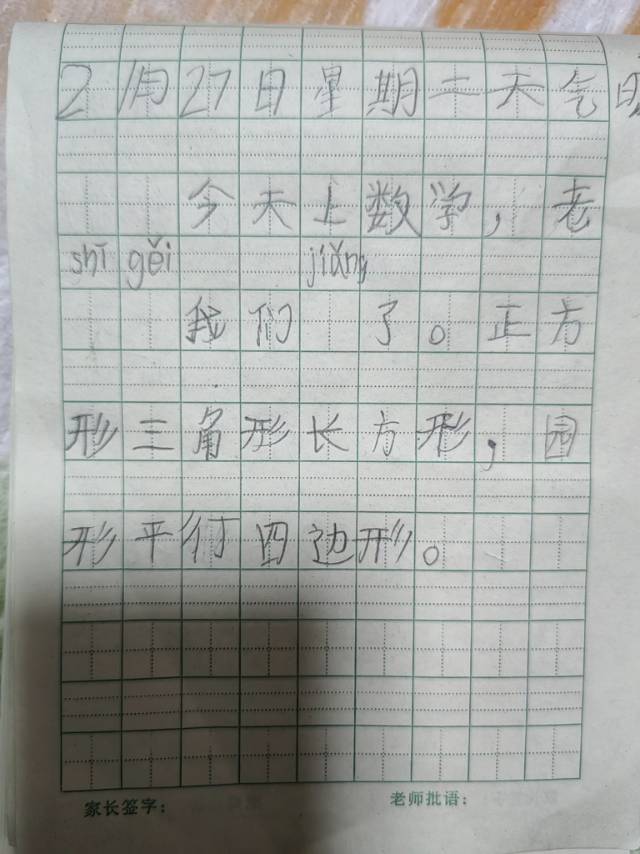 2月27日星期二天气
今天上数学，老
shī gěi jiǎng
我们了。正方
形三角形长方形，园
形平行四边形。
家长签字： 老师批语：